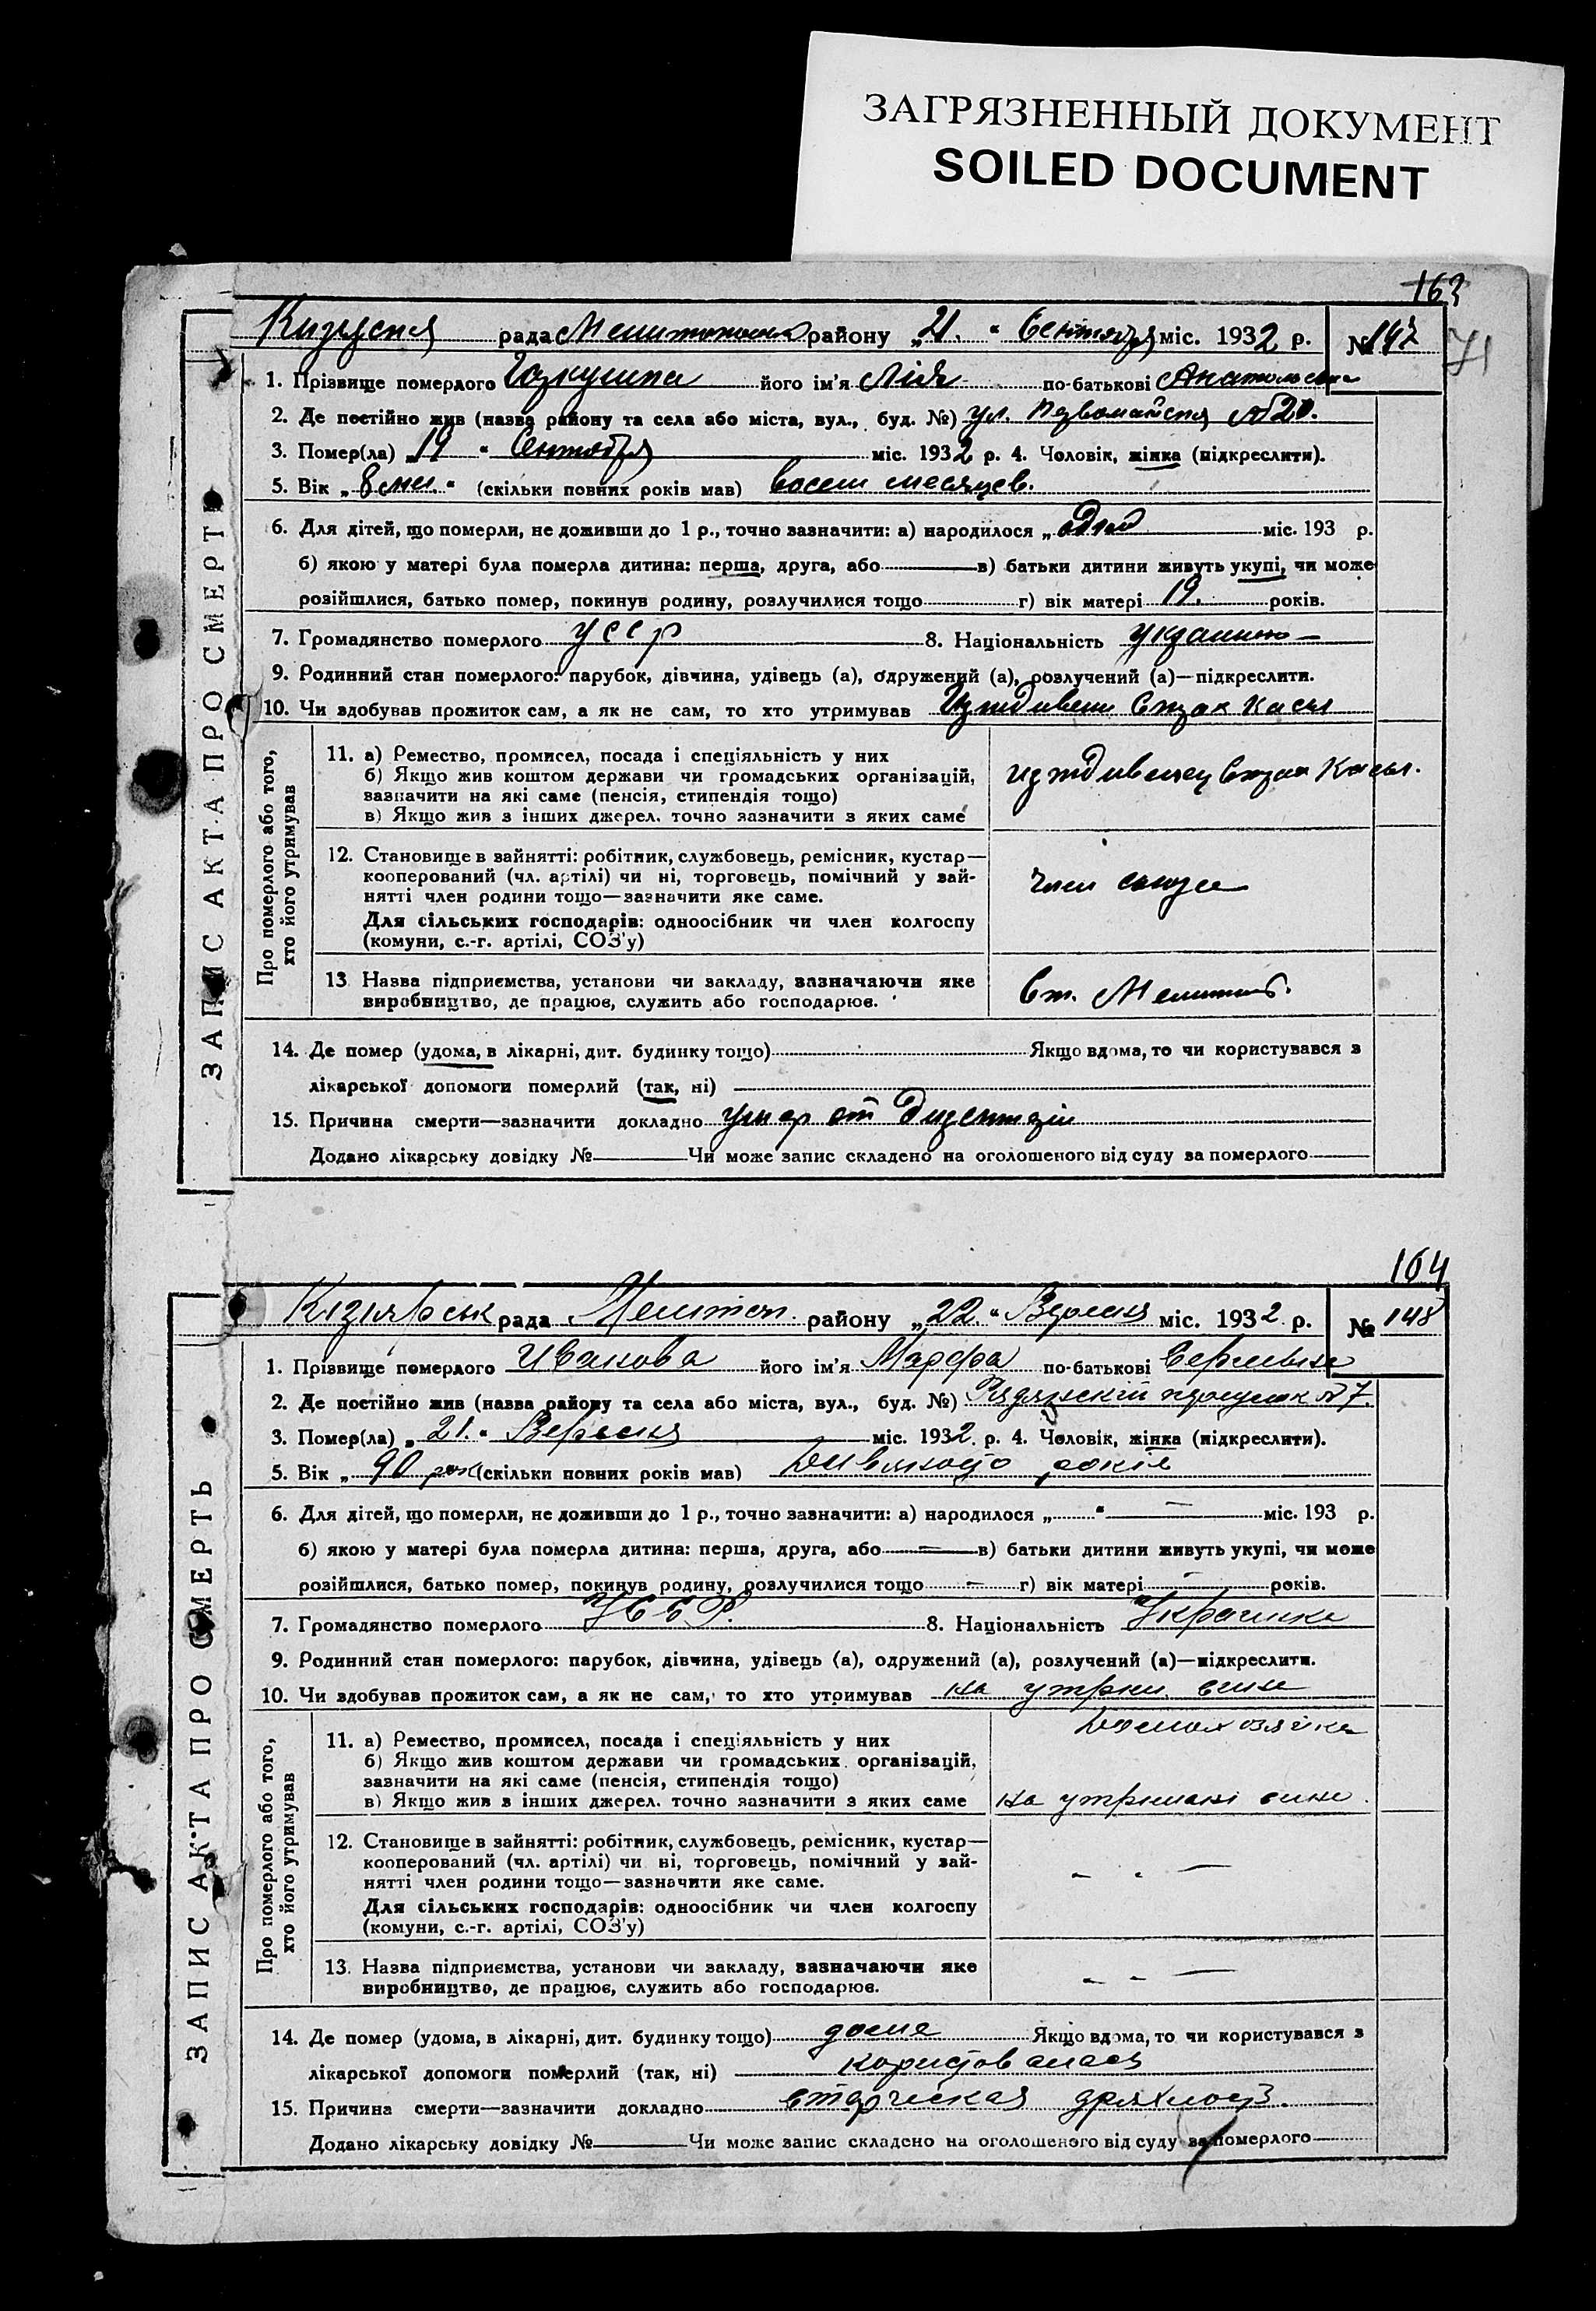 ЗАГРЯЗНЕННЫЙ ДОКУМЕНТ
SOILED DOCUMENT
163
рада район у „21.“ Сентября міс. 1932 р. № 147
71
1. Прізвище померлого його ім'я Лідя по-батькові
2. Де постійно жив (назва району та села або міста, вул., буд. №) ул. Первомайская №20.
3. Помер(ла) „19“ Сентября міс. 1932 р. 4. Чоловік, жінка (підкреслити).
5. Вік „8 мес.“ (скільки повних років мав) восем месяцев.
6. Для дітей, що померли, не доживши до 1 р., точно зазначити: а) народилося „ міс. 193 р.
б) якою у матері була померла дитина: перша, друга, або в) батьки дитини живуть укупі, чи може
розійшлися, батько помер, покинув родину, розлучилися тощо г) вік матері 19. років.
7. Громадянство померлого УССР 8. Національність
9. Родинний стан померлого: парубок, дівчина, удівець (а), одружений (а), розлучений (а)—підкреслити.
10. Чи здобував прожиток сам, а як не сам, то хто утримував Иждивени Страх Касы
Про померлого або того,
хто його утримував
11. а) Ремество, промисел, посада і спеціяльність у них
б) Якщо жив коштом держави чи громадських організацій,
зазначити на які саме (пенсія, стипендія тощо)
в) Якщо жив з інших джерел. точно зазначити з яких саме
иждивенец Страх Касы.
12. Становище в зайнятті: робітник, службовець, ремісник, кустар—
кооперований (чл. артілі) чи ні, торговець, помічний у зай-
нятті член родини тощо—зазначити яке саме.
Для сільських господарів: одноосібник чи член колгоспу
(комуни, с.-г. артілі, СОЗ'у)
член союза
13 Назва підприємства, установи чи закладу, зазначаючи яке
виробництво, де працює, служить або господарює.
Ст. Мелитоп.
14. Де помер (удома, в лікарні, дит. будинку тощо) Якщо вдома, то чи користувався з
лікарської допомоги померлий (так, ні)
15. Причина смерти—зазначити докладно умер от Дизентерии
Додано лікарську довідку № Чи може запис складено на оголошеного від суду за померлого
ЗАПИС АКТА ПРО СМЕРТ
164
Кизиярськ рада Мелитоп. району „22“ Вересня міс. 1932 р. № 148
1. Прізвище померлого Иванова його ім'я Марфа по-батькові
2. Де постійно жив (назва району та села або міста, вул., буд. №) Радянскій №7.
3. Помер(ла) „21.“ Вересня міс. 1932. р. 4. Чоловік, жінка (підкреслити).
5. Вік „90 рок (скільки повних років мав) років
6. Для дітей, що померли, не доживши до 1 р., точно зазначити: а) народилося „ “ — міс. 193 р.
б) якою у матері була померла дитина: перша, друга, або — в) батьки дитини живуть укупі, чи може
розійшлися, батько помер, покинув родину, розлучилися тощо — г) вік матері — років.
7. Громадянство померлого УССР. 8. Національність Українка
9. Родинний стан померлого: парубок, дівчина, удівець (а), одружений (а), розлучений (а)—підкреслити.
10. Чи здобував прожиток сам, а як не сам, то хто утримував на утрим. сина
Про померлого або того,
хто його утримував
11. а) Ремество, промисел, посада і спеціяльність у них
б) Якщо жив коштом держави чи громадських організацій,
зазначити на які саме (пенсія, стипендія тощо)
в) Якщо жив з інших джерел. точно зазначити з яких саме
Домохозяйка
на утримані сина.
12. Становище в зайнятті: робітник, службовець, ремісник, кустар—
кооперований (чл. артілі) чи ні, торговець, помічний у зай-
нятті член родини тощо—зазначити яке саме.
Для сільських господарів: одноосібник чи член колгоспу
(комуни, с.-г. артілі, СОЗ'у)
13. Назва підприємства, установи чи закладу, зазначаючи яке
виробництво, де працює, служить або господарює.
14. Де помер (удома, в лікарні, дит. будинку тощо) дома Якщо вдома, то чи користувався з
лікарської допомоги померлий (так, ні) користовалася
15. Причина смерти—зазначити докладно старческая дряхлость.
Додано лікарську довідку № Чи може запис складено на оголошеного від суду за померлого
ЗАПИС АКТА ПРО СМЕРТЬ